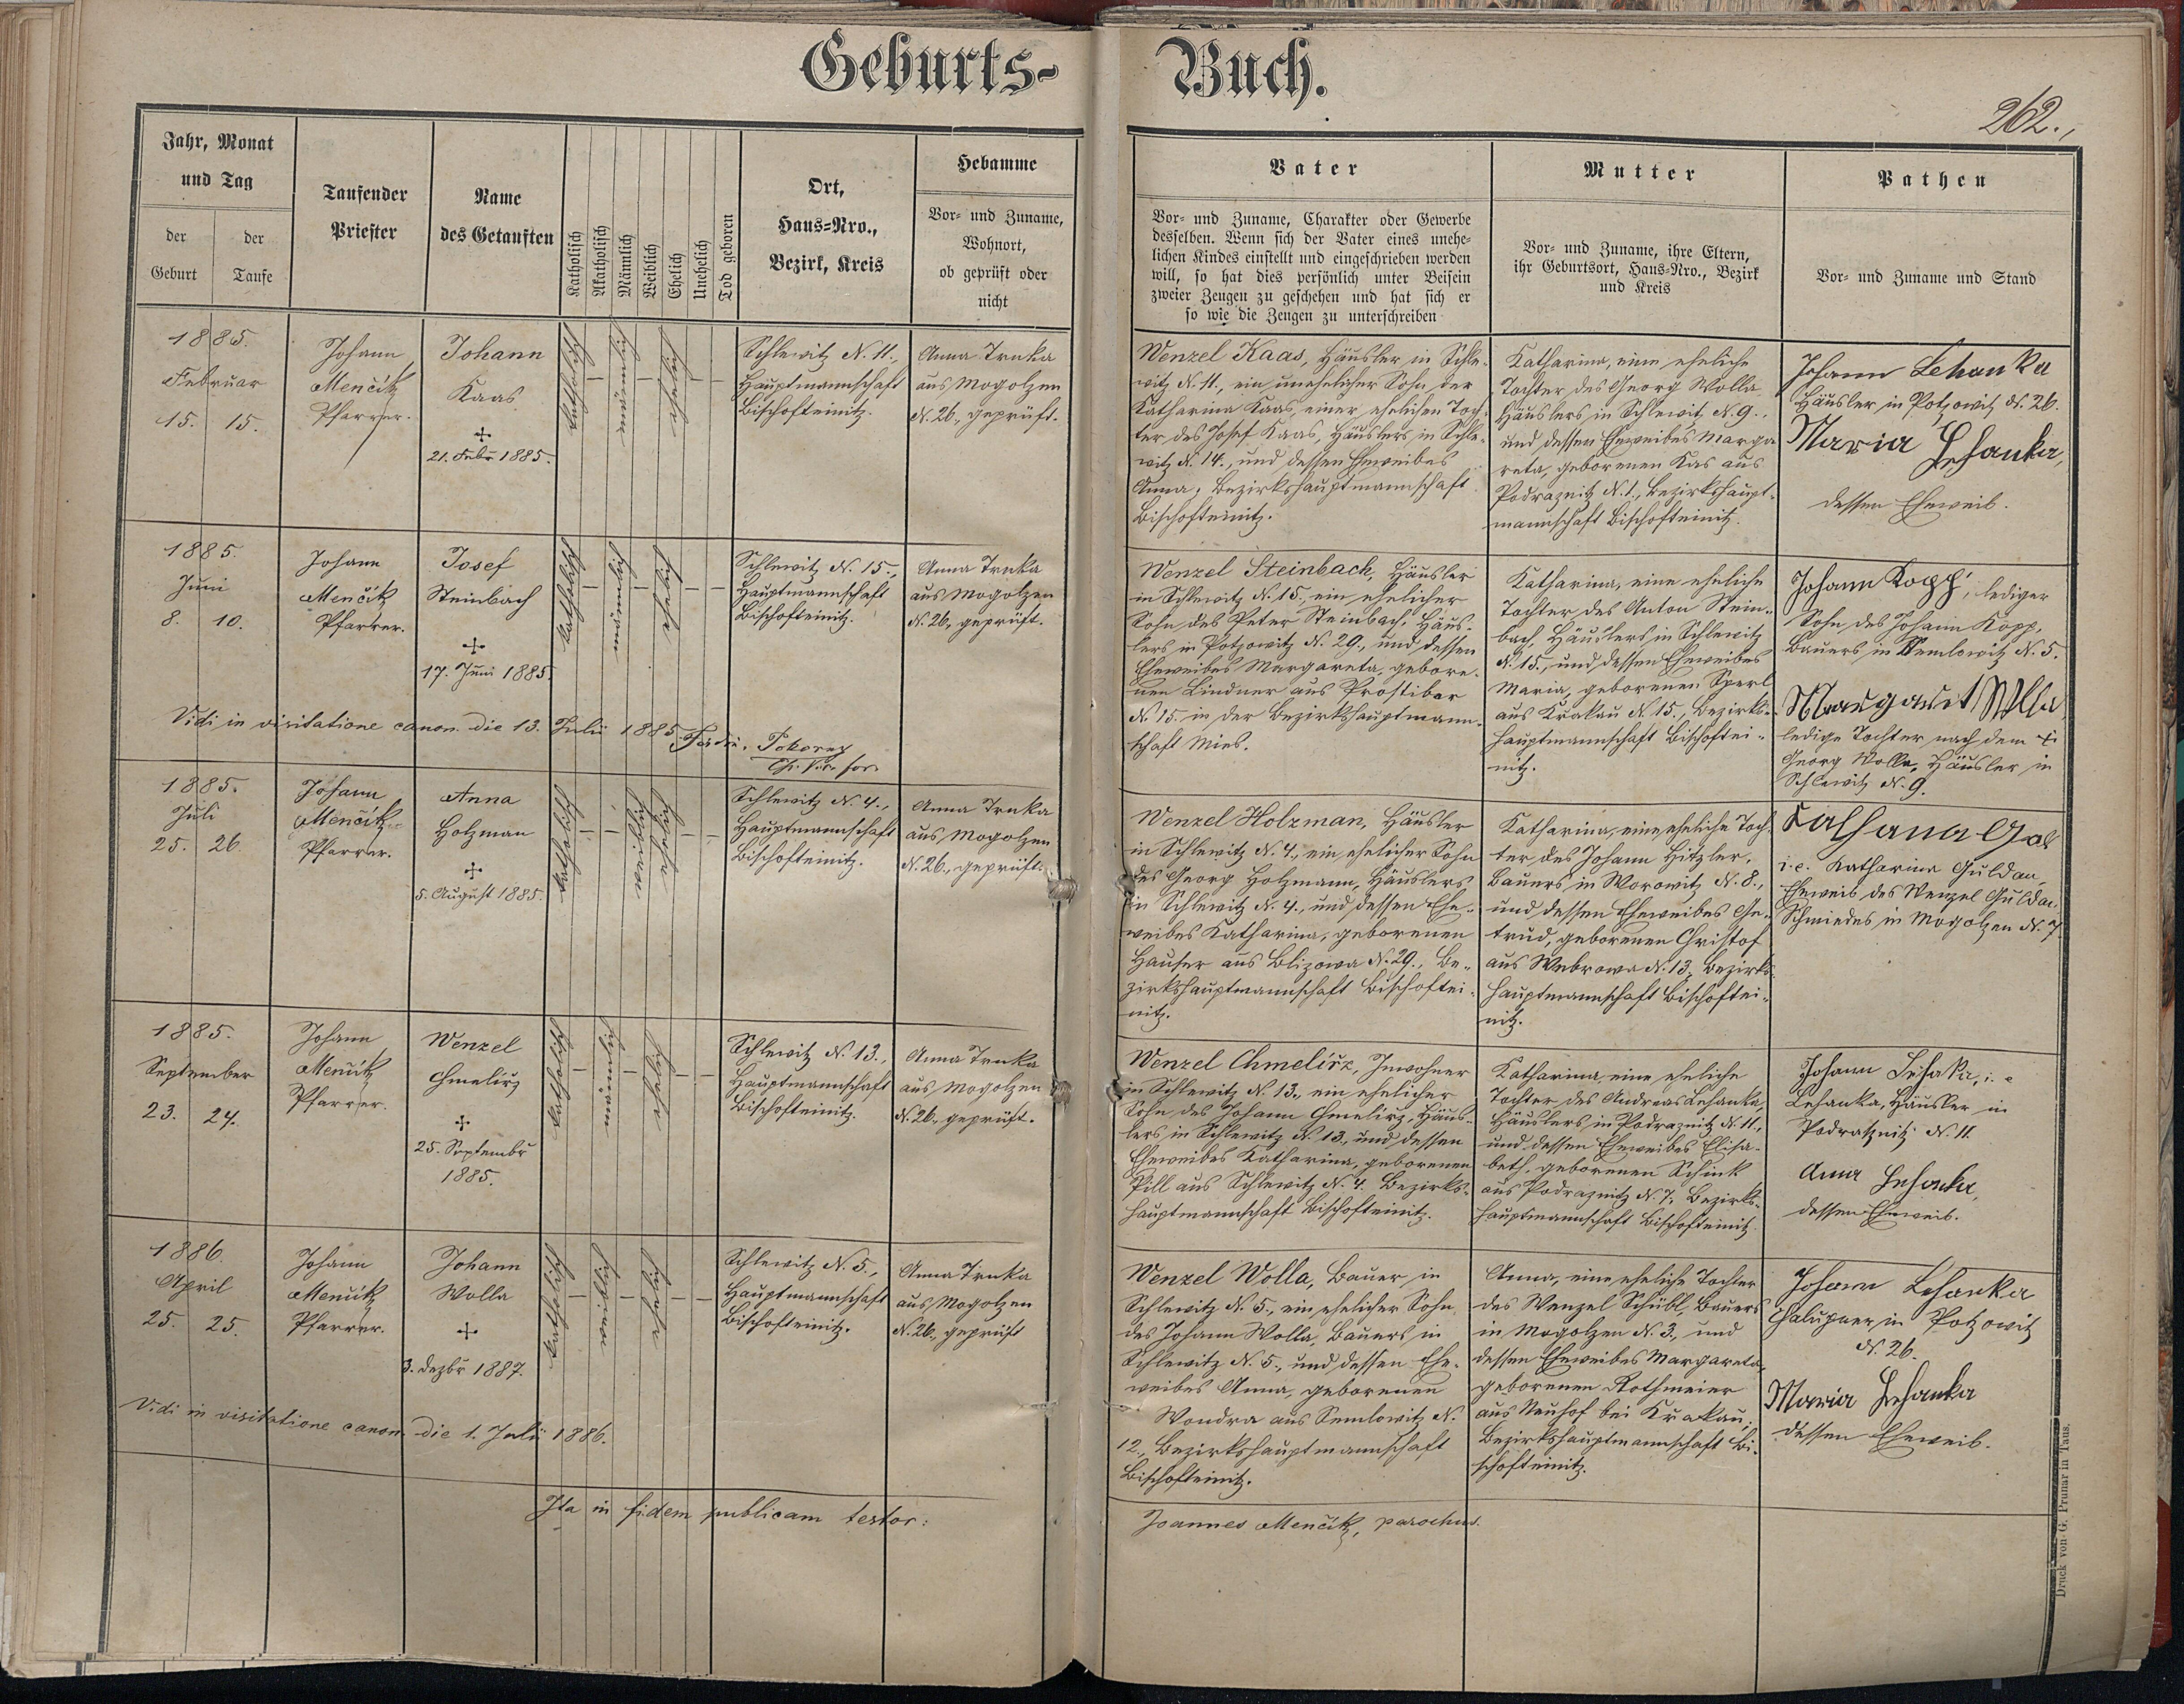 Geburts-Buch.
262.,
Jahr, Monat
und Tag
der
Geburt
der
Taufe
Taufender
Priester
Name
des Getauften
Katholisch
Akatholisch
Männlich
Weiblich
Ehelich
Unehelich
Tod geboren
Ort,
Haus-Nro.,
Bezirk, Kreis
Hebamme
Vor- und Zuname,
Wohnort,
ob geprüft oder
nicht
Vater
Vor- und Zuname, Charakter oder Gewerbe
desselben. Wenn sich der Vater eines unehe-
lichen Kindes einstellt und eingeschrieben werden
will, so hat dies persönlich unter Beisein
zweier Zeugen zu geschehen und hat sich er
so wie die Zeugen zu unterschreiben
Mutter
Vor- und Zuname, ihre Eltern,
ihr Geburtsort, Haus-Nro., Bezirk
und Kreis
Pathen
Vor- und Zuname und Stand
1885.
Februar
15. 15.
Johann
Menčik
Pfarrer.
Johann
Kaas
✢
21. Febr 1885.
katholisch
männlich
ehelich
Schlewitz N. 11.,
Hauptmannschaft
Bischofteinitz.
Anna Trnka
aus Mogolzen
N. 26., geprüft.
Wenzel Kaas, Häusler in Schle-
witz N. 11., ein unehelicher Sohn der
Katharina Kaas, einer ehelichen Toch-
ter des Josef Kaas, Häuslers in Schle-
witz N. 14., und dessen Eheweibes
Anna, Bezirkshauptmannschaft
Bischofteinitz.
Katharina, eine eheliche
Tochter des Georg Wolla
Häuslers in Schlewitz N. 9.,
und dessen Eheweibes Marga-
reta, geborenen Kas aus
Podraznitz N. 1., Bezirkshaupt-
mannschaft Bischofteinitz.
Johann Lehanka
Häusler in Potzowitz N. 26.
Maria Lehanka,
dessen Eheweib.
1885.
Juni
8. 10.
Johann
Menčik
Pfarrer.
Josef
Steinbach
✢
17. Juni 1885.
katholisch
männlich
ehelich
Schlewitz N. 15.,
Hauptmannschaft
Bischofteinitz.
Anna Trnka
aus Mogolzen
N. 26., geprüft.
Wenzel Steinbach, Häusler
in Schlewitz N. 15., ein ehelicher
Sohn des Peter Steinbach, Häus-
lers in Potzowitz N. 29., und dessen
Eheweibes Margareta, gebore-
nen Lindner aus Prostibor
N. 15. in der Bezirkshauptmann-
schaft Mies.
Katharina, eine eheliche
Tochter des Anton Stein-
bach, Häuslers in Schlewitz
N. 15., und dessen Eheweibes
Maria, geborenen Sperl
aus Krakau N. 15., Bezirks-
hauptmannschaft Bischoftei-
nitz.
Johann Kopp, lediger
Sohn des Johann Kopp,
Bauers in Semlowitz N. 5.
ledige Tochter nach dem ✢
Georg Wolla, Häusler in
Schlewitz N. 9.
Vidi in visitatione canon. die 13. Julii 1885. Ferdin. Pokorny
1885.
Juli
25. 26.
Johann
Menčik
Pfarrer.
Anna
Holzman
✢
5. August 1885.
katholisch
weiblich
ehelich
Schlewitz N. 4.,
Hauptmannschaft
Bischofteinitz.
Anna Trnka
aus Mogolzen
N. 26., geprüft.
Wenzel Holzman, Häusler
in Schlewitz N. 4., ein ehelicher Sohn
des Georg Holzmann, Häuslers
in Schlewitz N. 4., und dessen Ehe-
weibes Katharina, geborenen
Hauser aus Blizowa N. 29., Be-
zirkshauptmannschaft Bischoftei-
nitz.
Katharina, eine eheliche Toch-
ter des Johann Hitzler,
Bauers in Worowitz N. 8.,
und dessen Eheweibes Ge-
trud, geborenen Christof
aus Webrowa N. 13., Bezirks-
hauptmannschaft Bischoftei-
nitz.
i. e. Katharina Guldan,
Eheweib des Wenzel Guldan,
Schmiedes in Mogolzen N. 7.
1885.
September
23. 24.
Johann
Menčik
Pfarrer.
Wenzel
Chmelirz
✢
25. Septembr
1885.
katholisch
männlich
ehelich
Schlewitz N. 13.,
Hauptmannschaft
Bischofteinitz.
Anna Trnka
aus Mogolzen
N. 26., geprüft.
Wenzel Chmelirz, Inwohner
in Schlewitz N. 13., ein ehelicher
Sohn des Johann Chmelirz, Häus-
lers in Schlewitz N. 13., und dessen
Eheweibes Katharina, geborenen
Pill aus Schlewitz N. 4. Bezirks-
hauptmannschaft Bischofteinitz.
Katharina, eine eheliche
Tochter des Andreas Lehanka,
Häuslers in Podraznitz N. 11.,
und dessen Eheweibes Elisa-
beth, geborenen Schink
aus Podraznitz N. 7., Bezirks-
hauptmannschaft Bischofteinitz.
Johann i. e
Lehanka, Häusler in
Podratznitz N. 11.
Anna Lehanka,
dessen Eheweib.
1886.
April
25. 25.
Johann
Menčik
Pfarrer.
Johann
Wolla
✢
3. Dezbr 1887.
katholisch
weiblich
ehelich
Schlewitz N. 5.,
Hauptmannschaft
Bischofteinitz.
Anna Trnka
aus Mogolzen
N. 26., geprüft
Wenzel Wolla, Bauer in
Schlewitz N. 5., ein ehelicher Sohn
des Johann Wolla, Bauers in
Schlewitz N. 5., und dessen Ehe-
weibes Anna, geborenen
Wondra aus Semlowitz N.
12., Bezirkshauptmannschaft
Bischofteinitz.
Anna, eine eheliche Tochter
des Wenzel Schübl, Bauers
in Mogolzen N. 3., und
dessen Eheweibes Margareta,
geborenen Rothmeier
aus Neuhof bei Krakau,
Bezirkshauptmannschaft Bi-
schofteinitz.
Johann Lehanka
Chalupner in Potzowitz
N. 26.
Maria Lehanka
dessen Eheweib.
Vidi in visitatione canon. die 1. Julii 1886.
Ita in fidem publicam testor:
Joannes Menčik, parochus.
Druck von G. Prunar in Taus.